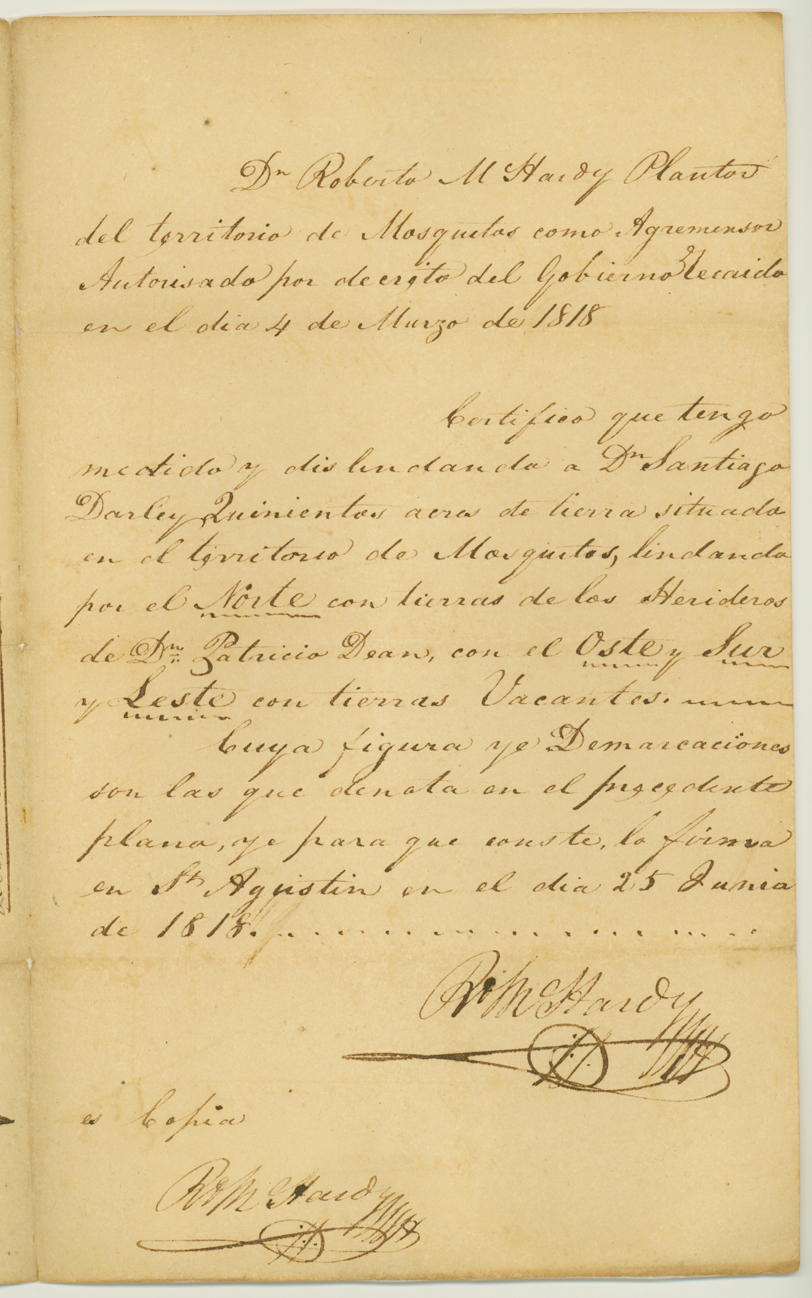 Dn Roberto McHardy Plantor
del territorio de Mosquitos como Agremensor
Autorisado por decreto del Gobierno recaido
en el dia 4 de Marzo de 1818
Certifico que tengo
medido y dislindando a Dn Santiago
Darley Quinientos acres de tierra situado
en el territorio de Mosquitos, lindando
por el Norte con tierras de los Herideros
de Dn Patricio Dean, con el Oste y Sur
y Leste con tierras Vacantes.
Cuya figura ye Demarcaciones
son las que denota en el precedente
plano, ye para que conste, lo firma
en Sn Agustin en el dia 25 Junio
de 1818.
Rt McHardy
es Copia
Rt McHardy